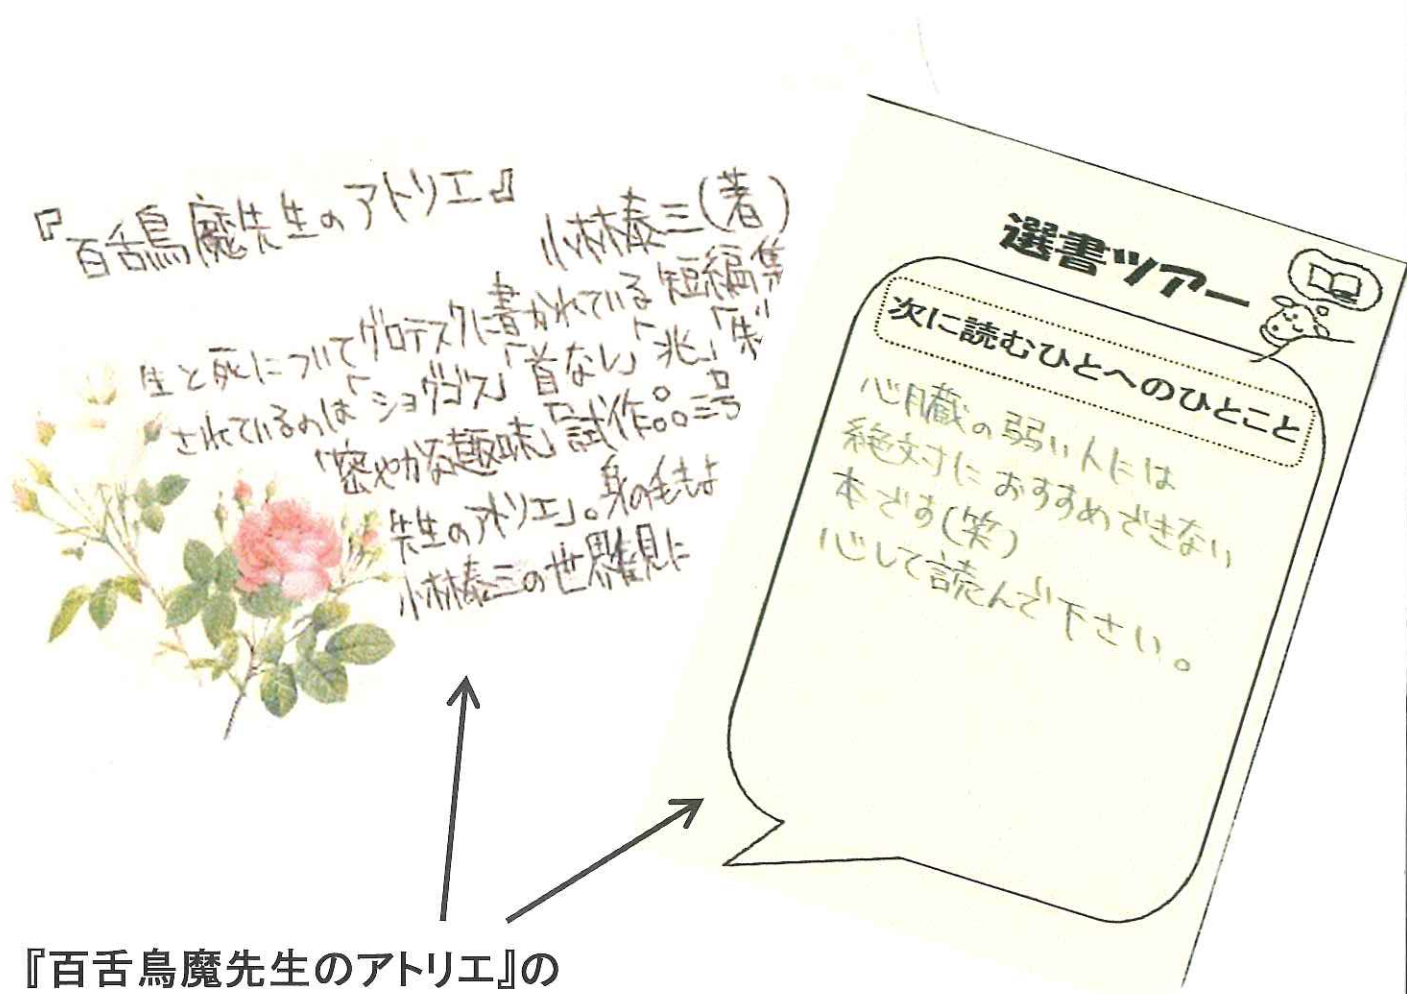 『百舌鳥魔先生のアトリエ』
小林泰三(著)
生と死についてグロテスクに書かれている短編集
されているのは「ショグゴス」「首なし」「兆」「朱
「密やかな趣味」「試作品三号
先生のアトリエ」。身の毛もよ
小林泰三の世界観に
選書ツアー
次に読むひとへのひとこと
心臓の弱い人には
絶対におすすめできない
本です(笑)
心して読んで下さい。
『百舌鳥魔先生のアトリエ』の